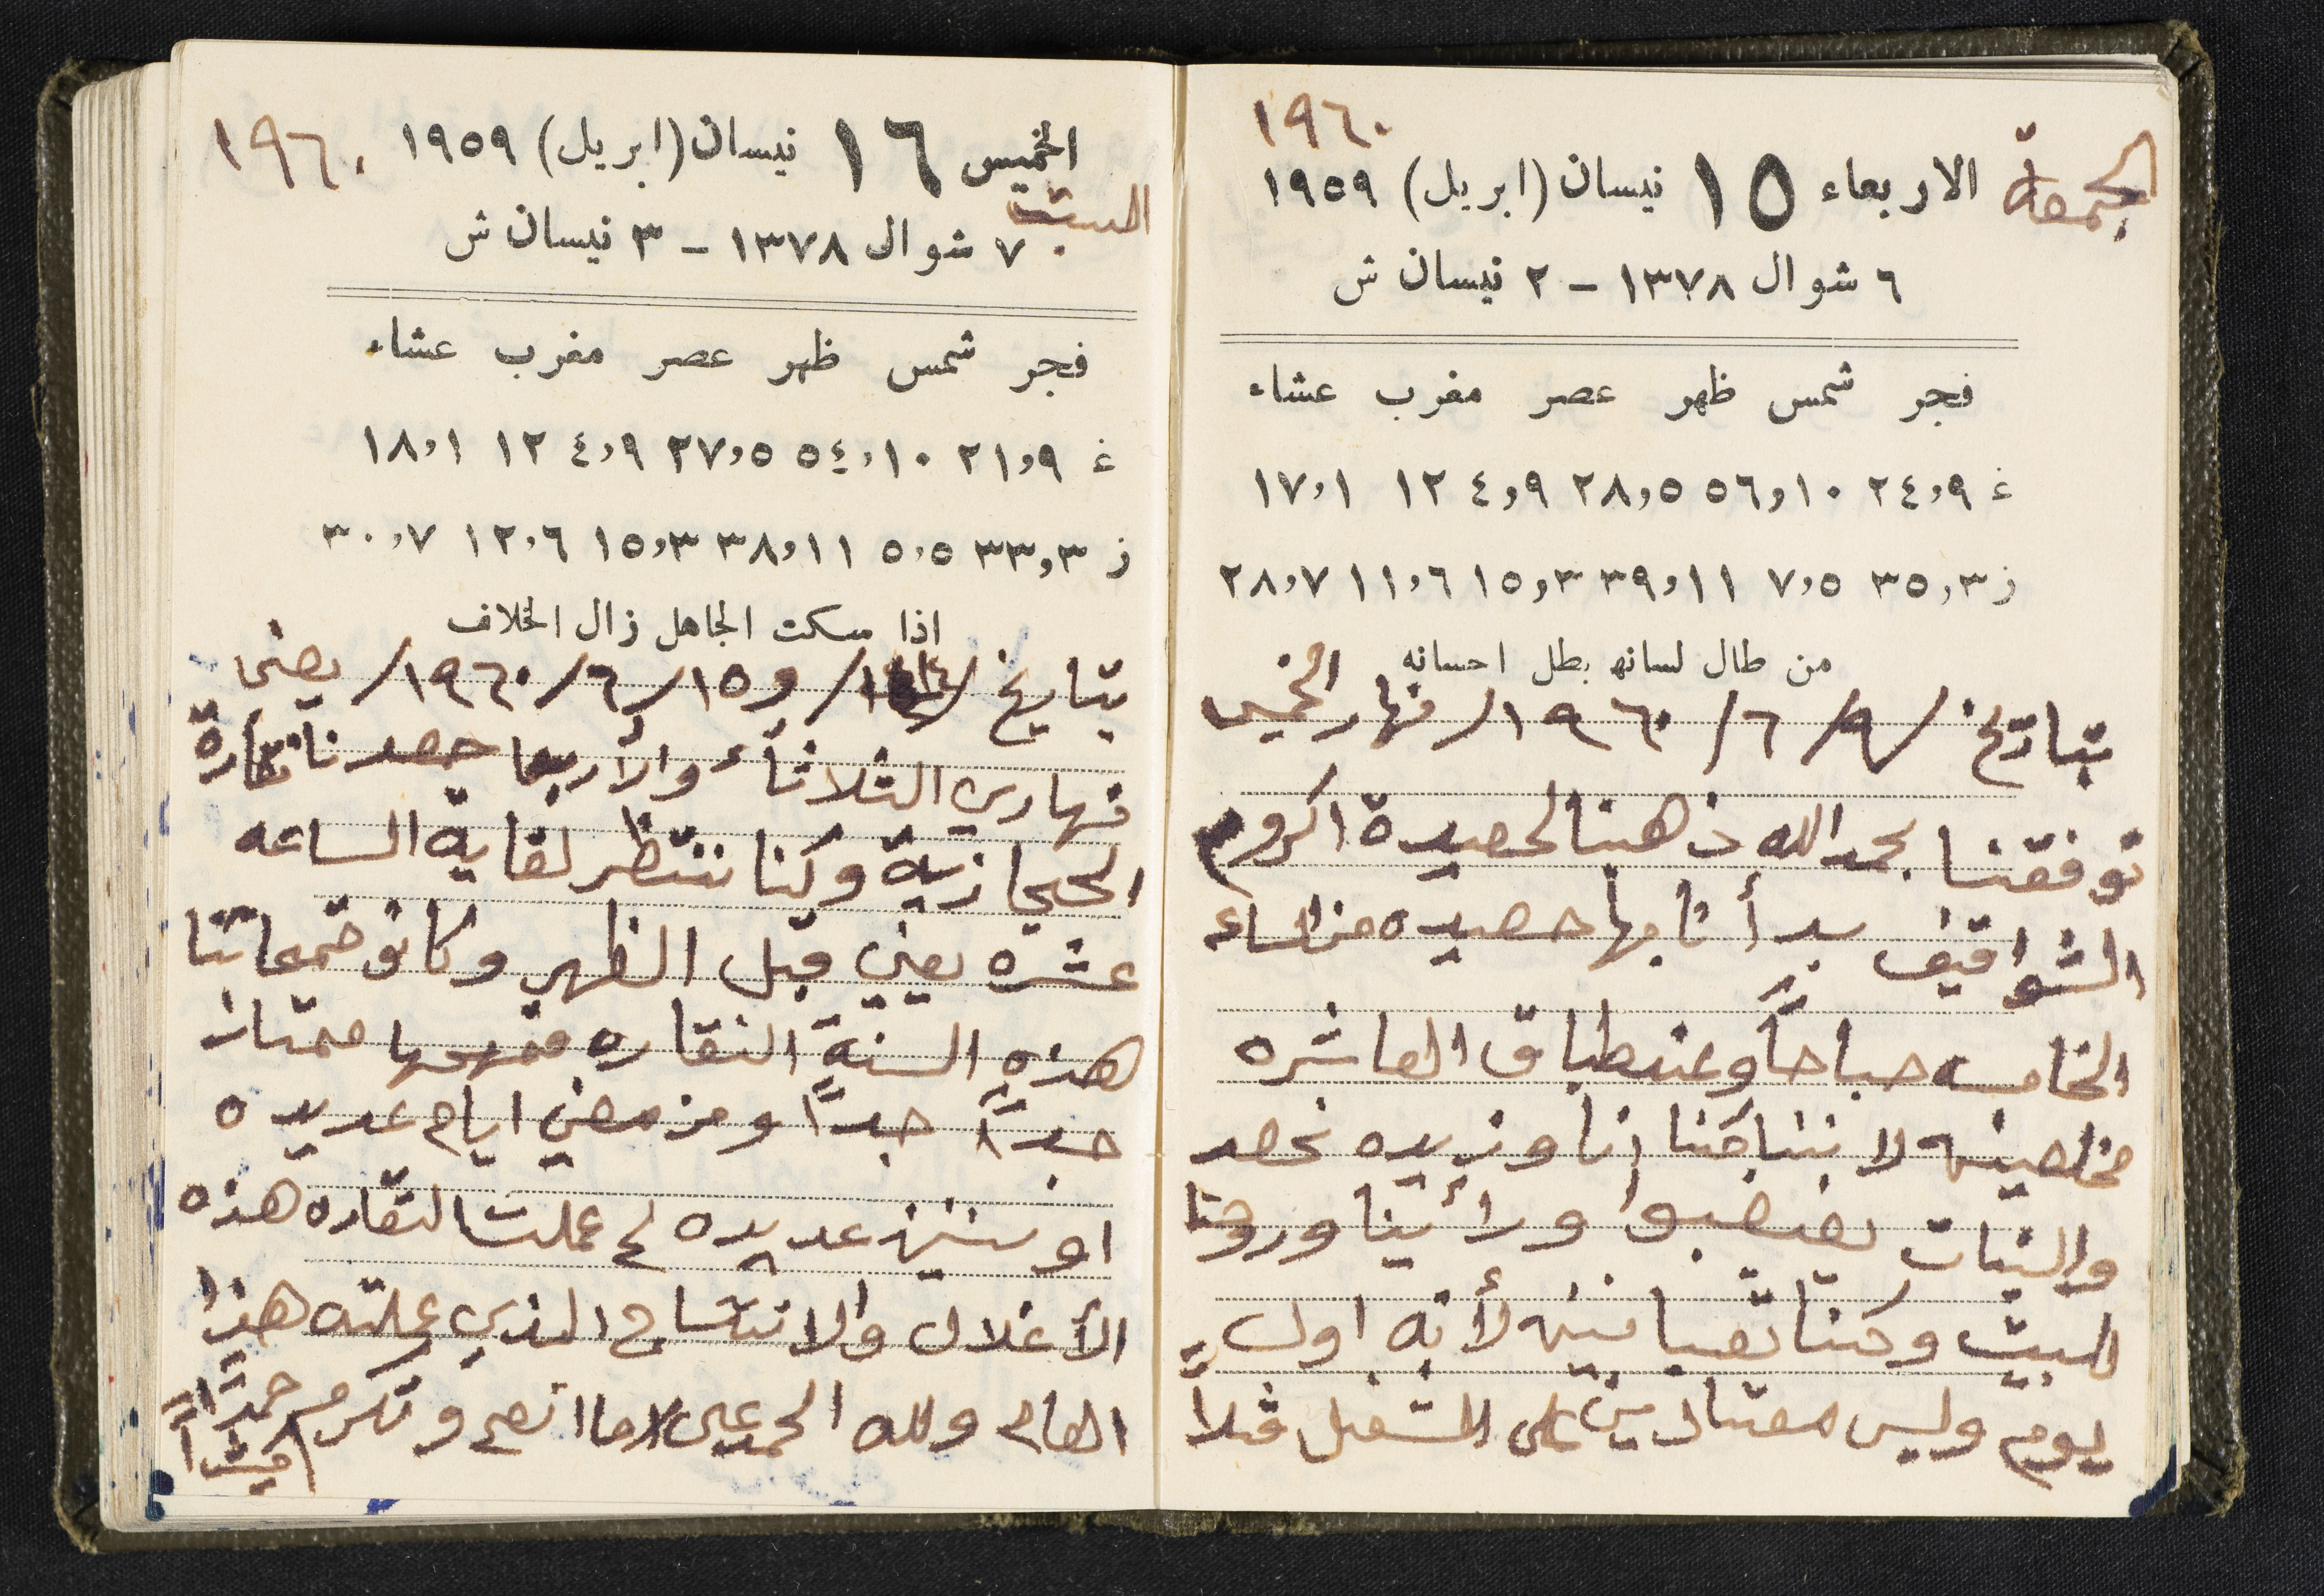 ١٩٦٠
الجمعة الاربعاء ١٥ نيسان (ابريل) ١٩٥٩
٦ شوال ١٣٧٨ - ٢ نيسان ش
فجر شمس ظهر عصر مغرب عشاء
غ ٢٤،٩ ٥٦،١٠ ٢٨،٥ ٤،٩ ١٢ ١٧،١
ز ٣٥،٣ ٧،٥ ٣٩،١١ ١٥،٣ ١١،٦ ٢٨،٧
من طال لسانه بطل احسانه
بتاريخ /٩/ ٦/ ١٩٦٠/ نهار الخميس
توفقنا بحمد الله ذهبنا لحصيدة اكروم
الشواقيف بدأنا بها حصيده من الساعه
الخامسه صباحاً وعند طباق العاشره
مخلصينه لا نتناجنا انا وزيده نحصد
والبنات يغصبوا ورأينا وروحنا
للبيت وكنا تعبانين لأنه اول
يوم وليس معتادين على الشغل
الخميس ١٦ نيسان (ابريل) ١٩٥٩ ١٩٦٠
السبت
٧ شوال ١٣٧٨ - ٣ نيسان ش
فجر شمس ظهر عصر مغرب عشاء
غ ٢١،٩ ٥٤،١٠ ٢٧،٥ ٤،٩ ١٢ ١٨،١
ز ٣٣،٣ ٥،٥ ٣٨،١١ ١٥،٣ ١٢،٦ ٣٠،٧
اذا سكت الجاهل زال الخلاف
بتاريخ /١٤/ و١٥/٦/١٩٦٠/ يعني
نهاري الثلاثاء والأربعا حصدنا نقارة
الحجازية وكنا ننتظر لغاية الساعه
عشره يعني قبل الظهر وكانو قمعاتنا
هذه السنة النقاره قمحها ممتاز
جداً جداً ومن مضي ايام عديده
او سنين عديده لم عملت النقاره هذه
الأغلال والانتساج الذي عملته هذا
العام ولله الحمد على ما انعم وتكرم حمداً
كثيراً